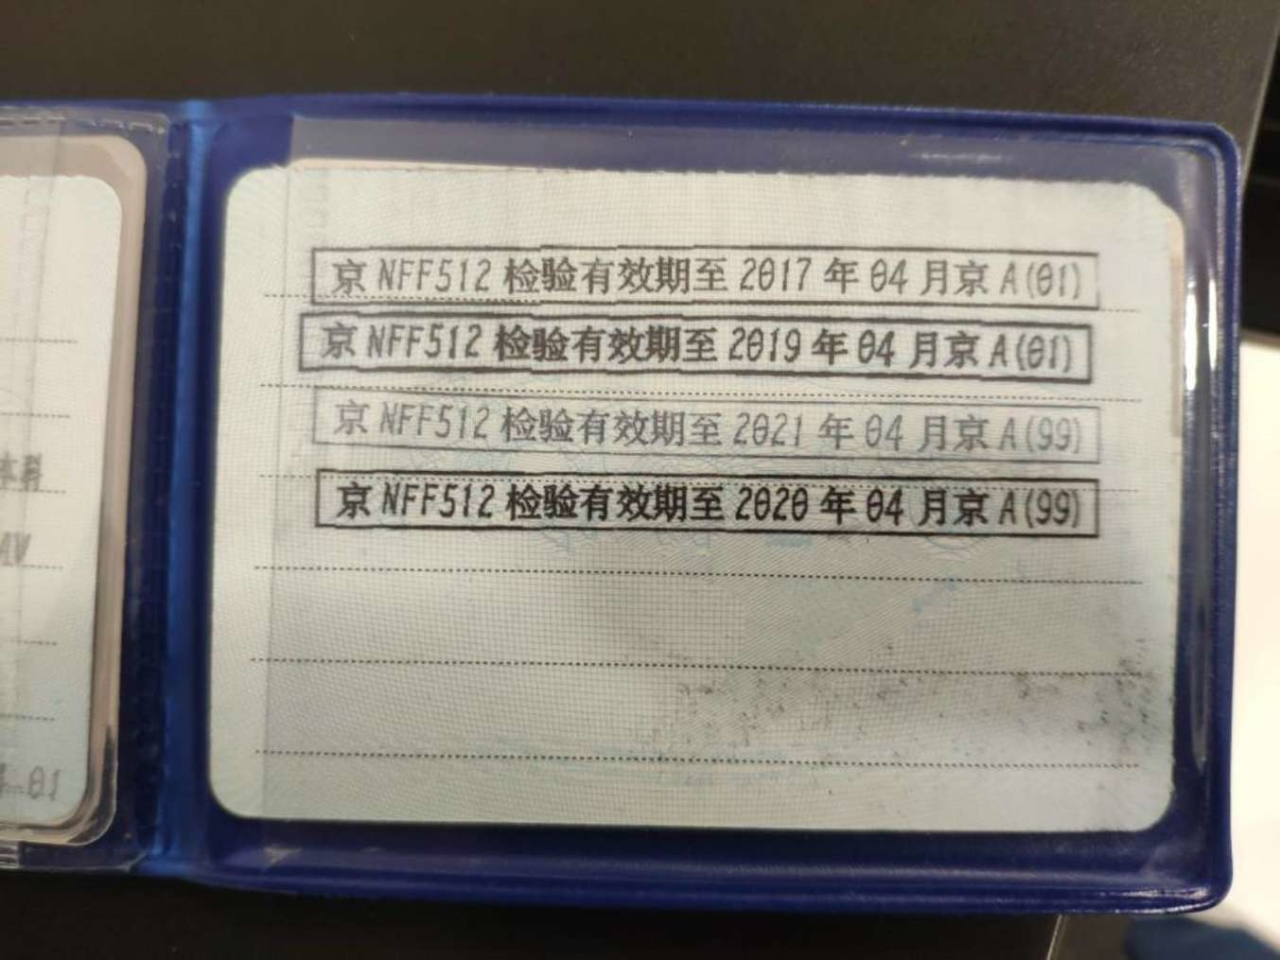 京 NFF512 检验有效期至 2017 年 04 月京 A(01)
京 NFF512 检验有效期至 2019 年 04 月京 A(01)
京 NFF512 检验有效期至 2021 年 04 月京 A(99)
京 NFF512 检验有效期至 2020 年 04 月京 A(99)
本科
AV
-01